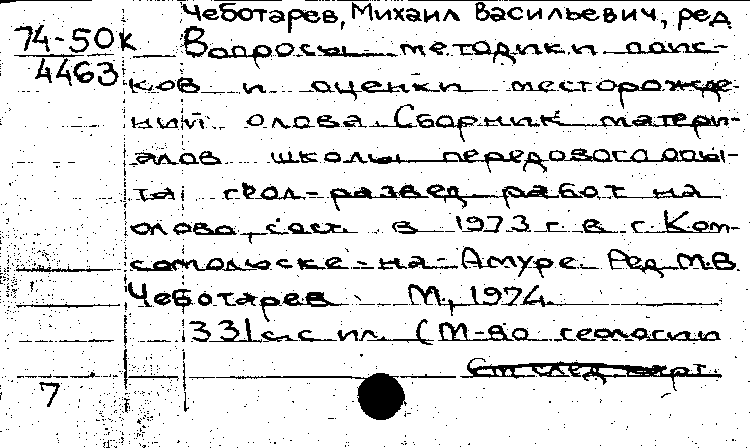 Чеботарев, Михаил Васильевич, ред
74-50к
4463
Вопросы методики поис-
ков и оценки месторожде-
ний олова. Сборник матери-
алов школы передового опы-
та геол-развед. работ на
олово, сост. в 1973 г в г. Ком-
сомольске-на-Амуре. Ред М.В.
Чеботарев М., 1974.
331с. с ил. (М-во геологии
См след карт.
7